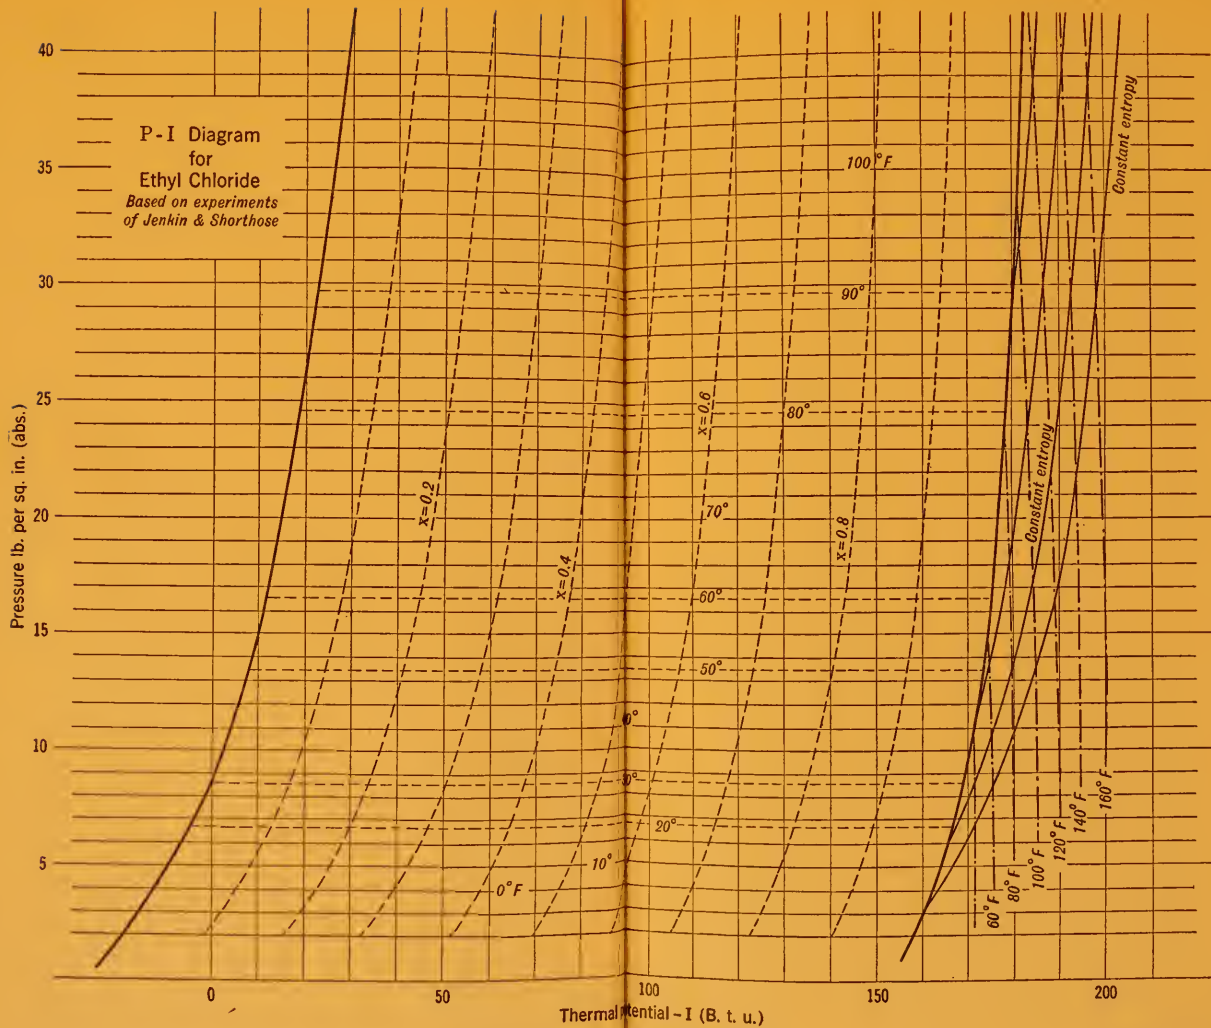 P-I Diagram
for
Ethyl Chloride
Based on experiments
of Jenkin & Shorthose
Pressure lb. per sq. in. (abs.)
40
35
30
25
20
15
10
5
100°F
90°
80°
70°
60°
50°
20°
10°
0°F
x=0.2
x=0.4
x=0.6
x=0.8
Constant entropy
Constant entropy
60°F
80°F
100°F
120°F
140°F
160°F
0
50
100
150
200
Thermal -I (B. t. u.)